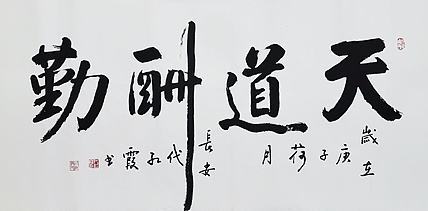 天道酬勤
歲在庚子荷月
長安代紅霞書